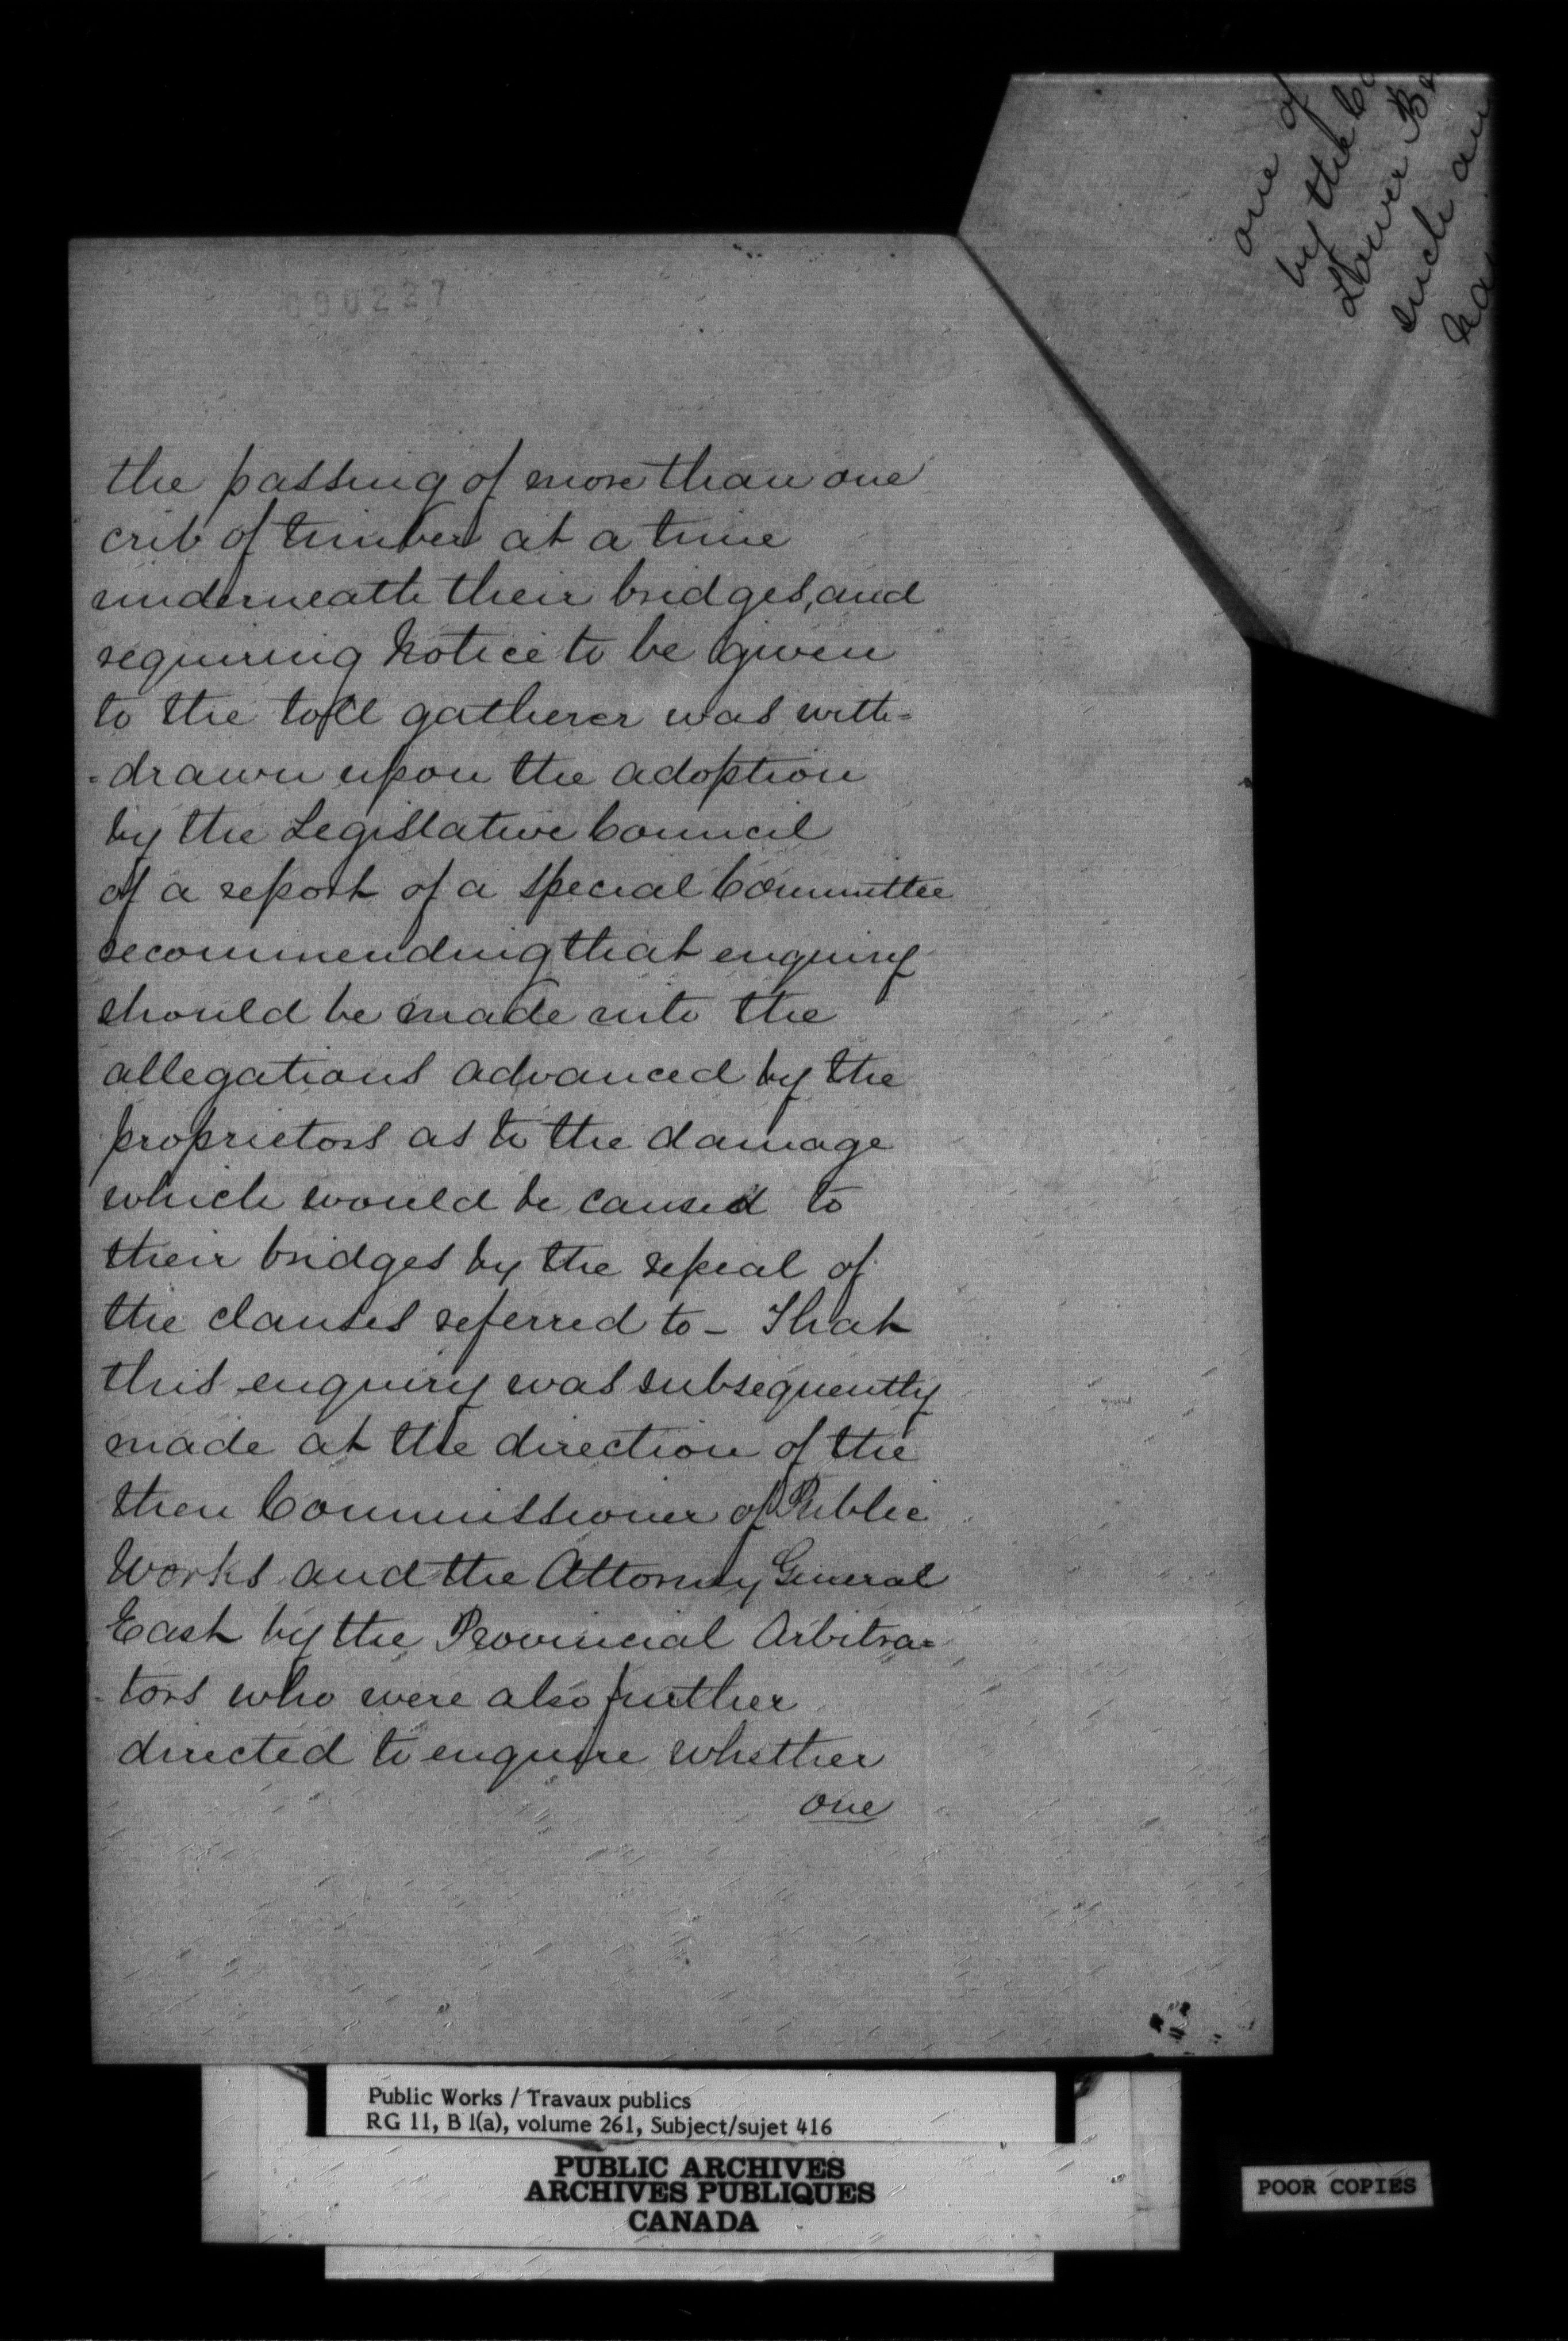 090227
the passing of more than one
crib of timber at a time
underneath their bridges, and
requiring Notice to be given
to the toll gatherer was with=
=drawn upon the adoption
by the Legislative Council
of a report of a special Committee
recommending that enquiry
should be made into the
allegations advanced by the
proprietors as to the damage
which would be caused to
their bridges by the repeal of
the clauses referred to - That
this enquiry was subsequently
made at the direction of the
then Commissioner of Public
Works and the Attorney General
East by the Provincial Arbitra=
-tors who were also further
directed to enquire whether
one
one of
by the
Lower
such
Public Works / Travaux publics
RG 11, B 1(a), volume 261, Subject/sujet 416
PUBLIC ARCHIVES
ARCHIVES PUBLIQUES
CANADA
POOR COPIES